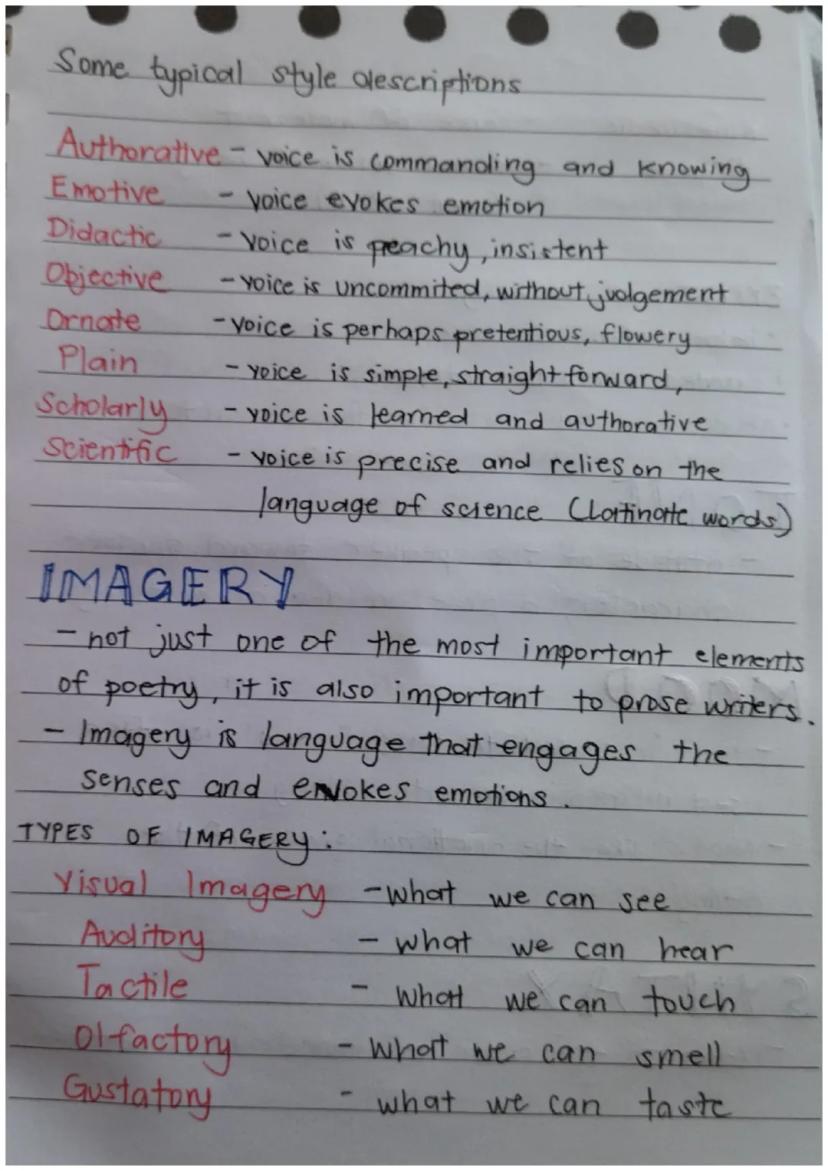 Some typical style descriptions
Authorative - voice is commanding and knowing
Emotive - voice evokes emotion
Didactic - voice is peachy, insistent
Objective - voice is uncommited, without judgement
Ornate - voice is perhaps pretentious, flowery
Plain - voice is simple, straightforward,
Scholarly - voice is learned and authorative
Scientific - voice is precise and relies on the
language of science (Latinate words)
IMAGERY
- not just one of the most important elements
of poetry, it is also important to prose writers.
- Imagery is language that engages the
senses and evokes emotions.
TYPES OF IMAGERY:
Visual Imagery - what we can see
Auditory - what we can hear
Tactile - what we can touch
Olfactory - what we can smell
Gustatory - what we can taste